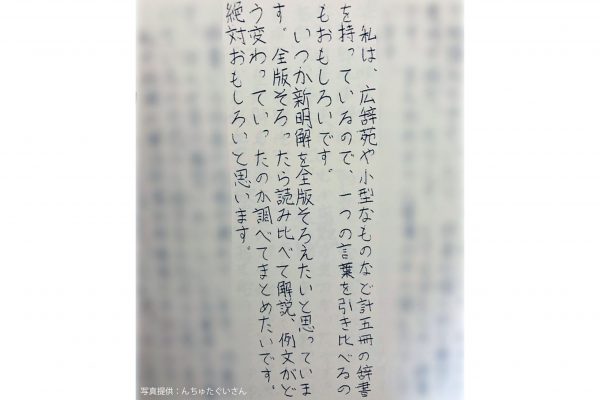 私は、広辞苑や小型なものなど計五冊の辞書
を持っているので、一つの言葉を引き比べるの
もおもしろいです。
いつか新明解を全版そろえたいと思っていま
す。全版そろったら読み比べて解説、例文がど
う変わっていったのか調べてまとめたいです。
絶対おもしろいと思います。
写真提供：んちゅたぐいさん